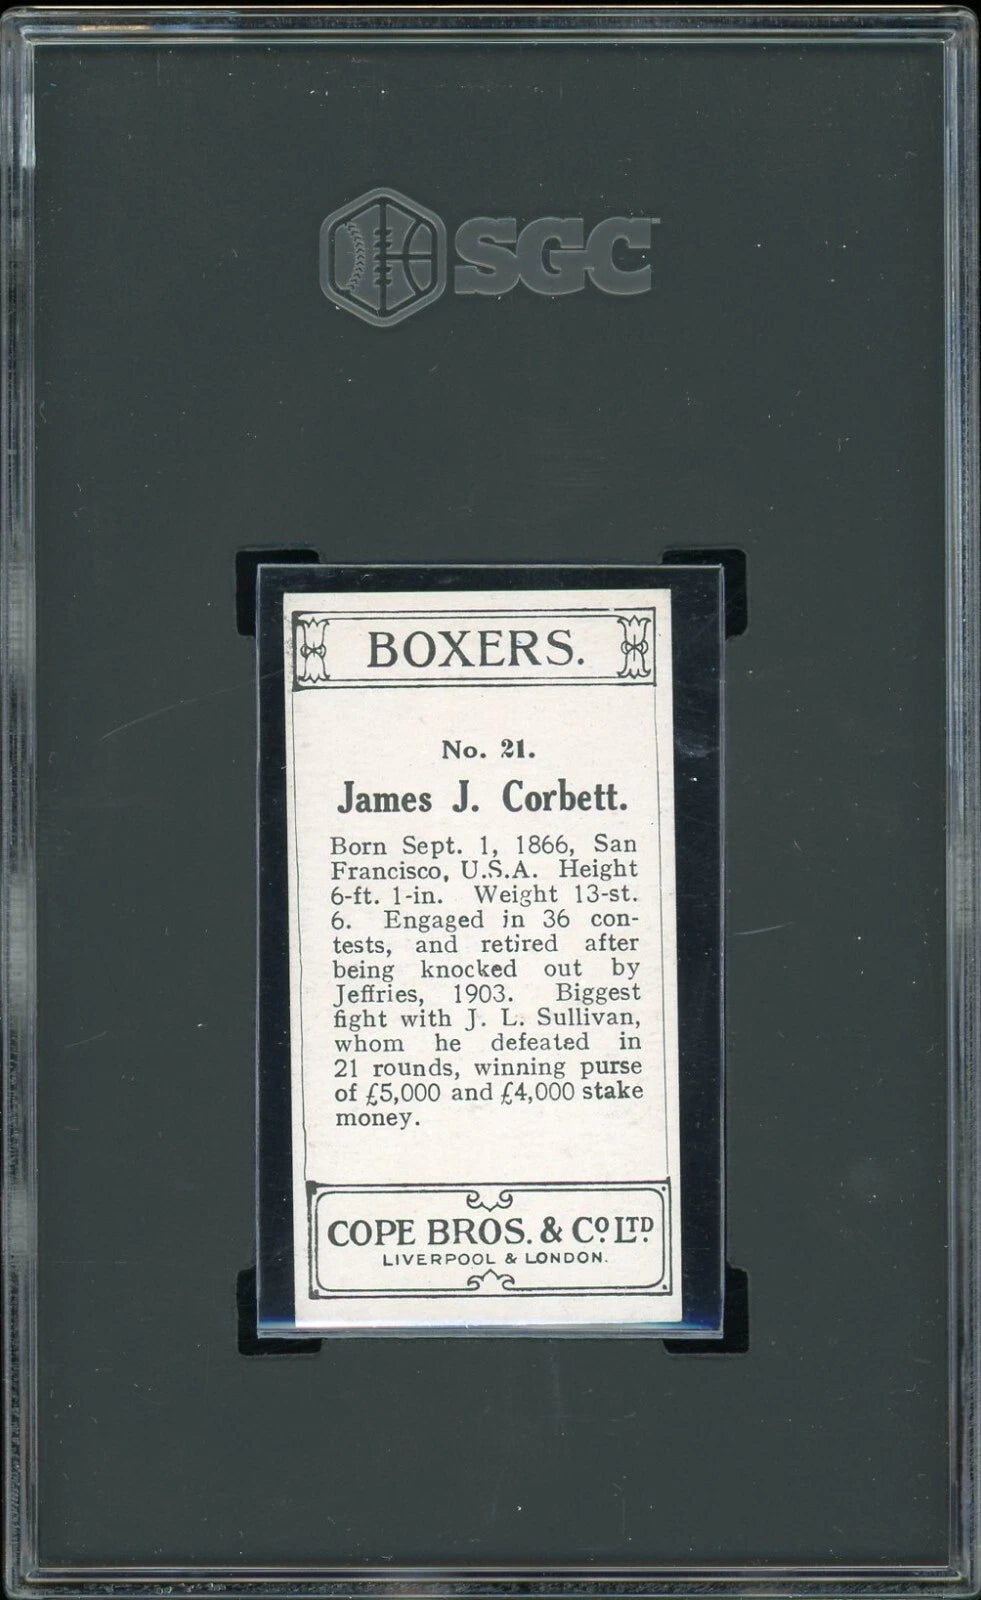 SGC
BOXERS.
No. 21.
James J. Corbett.
Born Sept. 1, 1866, San
Francisco, U.S.A. Height
6-ft. 1-in. Weight 13-st.
6. Engaged in 36 con-
tests, and retired after
being knocked out by
Jeffries, 1903. Biggest
fight with J. L. Sullivan,
whom he defeated in
21 rounds, winning purse
of £5,000 and £4,000 stake
money.
COPE BROS. & CO. LTD.
LIVERPOOL & LONDON.